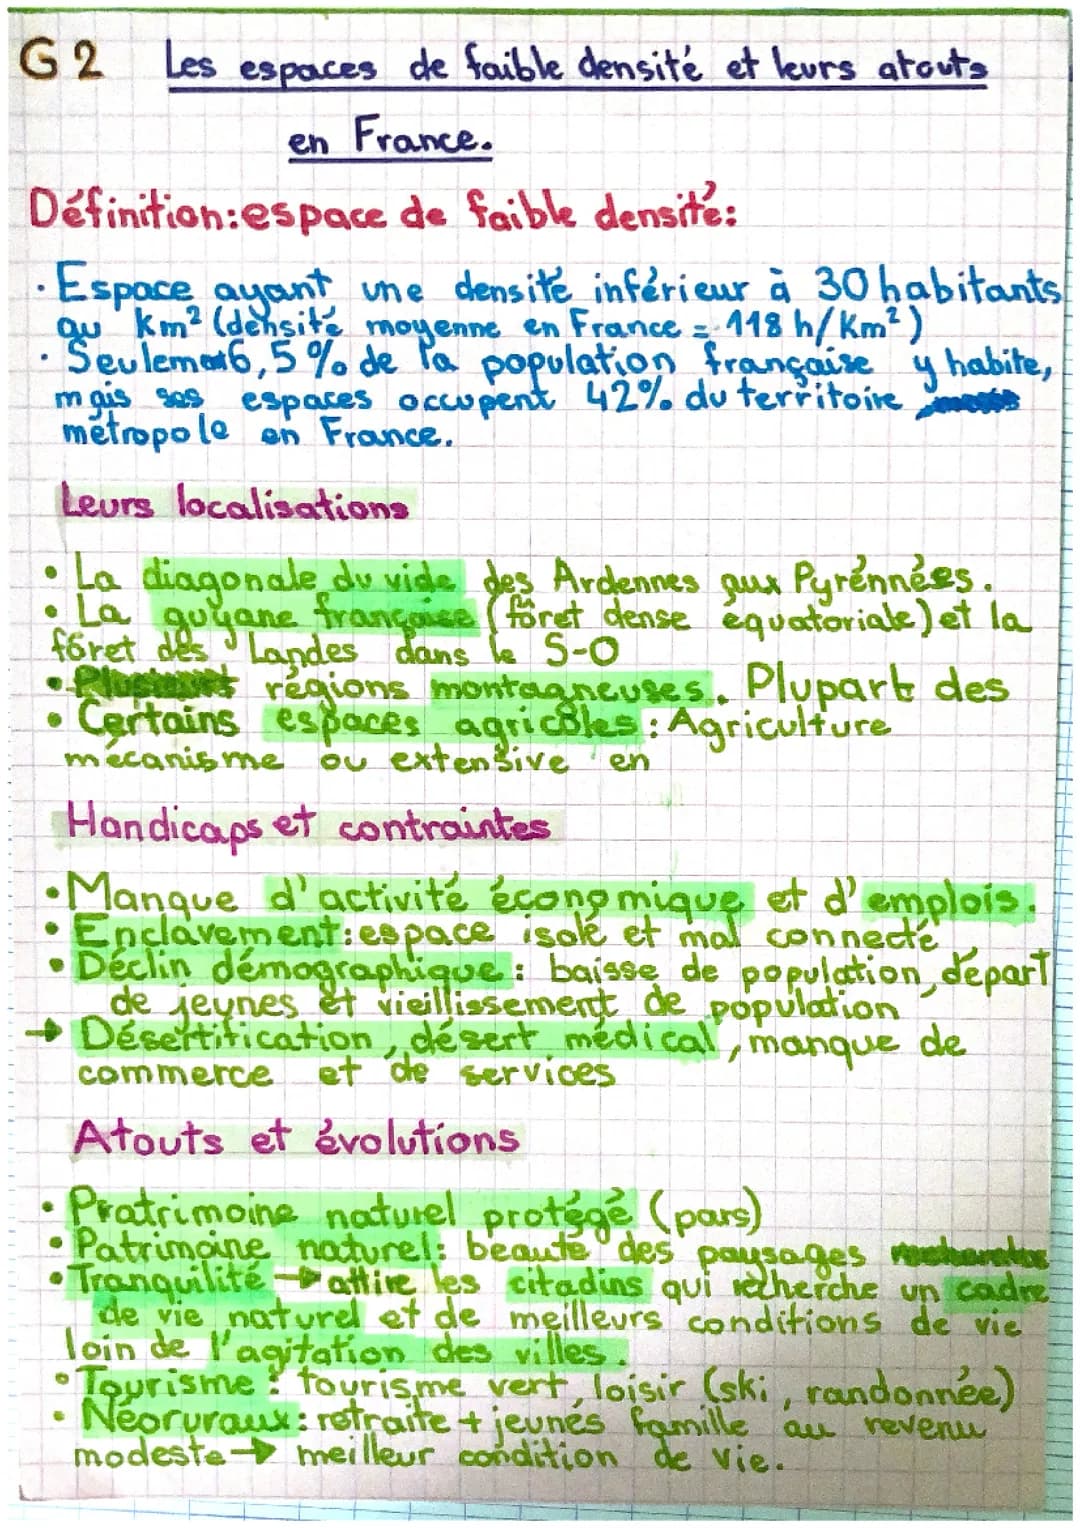 G2 Les espaces de faible densité et leurs atouts
en France.
Définition:espace de faible densité:
· Espace ayant une densité inférieur à 30 habitants
au Km² (densité moyenne en France = 118 h/Km²)
· Seulement 6,5% de la population française y habite,
mais ses espaces occupent 42% du territoire
métropole en France.
Leurs localisations
• La diagonale du vide des Ardennes aux Pyrénnées.
• La guyane française (fôret dense équatoriale) et la
fôret des Landes dans le S-O
• régions montagneuses. Plupart des
• Certains espaces agricoles : Agriculture
mécanisme ou extensive en
Handicaps et contraintes
• Manque d'activité économique et d'emplois.
• Enclavement: espace isolé et mal connecté
• Déclin démographique : baisse de population, départ
de jeunes et vieillissement de population
→ Désertification, désert médical, manque de
commerce et de services
Atouts et évolutions
• Pratrimoine naturel protégé (pars)
• Patrimoine naturel: beauté des paysages
• Tranquilité → attire les citadins qui recherche un cadre
de vie naturel et de meilleurs conditions de vie
loin de l'agitation des villes.
• Tourisme : tourisme vert, loisir (ski, randonnée)
• Néoruraux: retraite + jeunes famille au revenu
modeste → meilleur condition de vie.